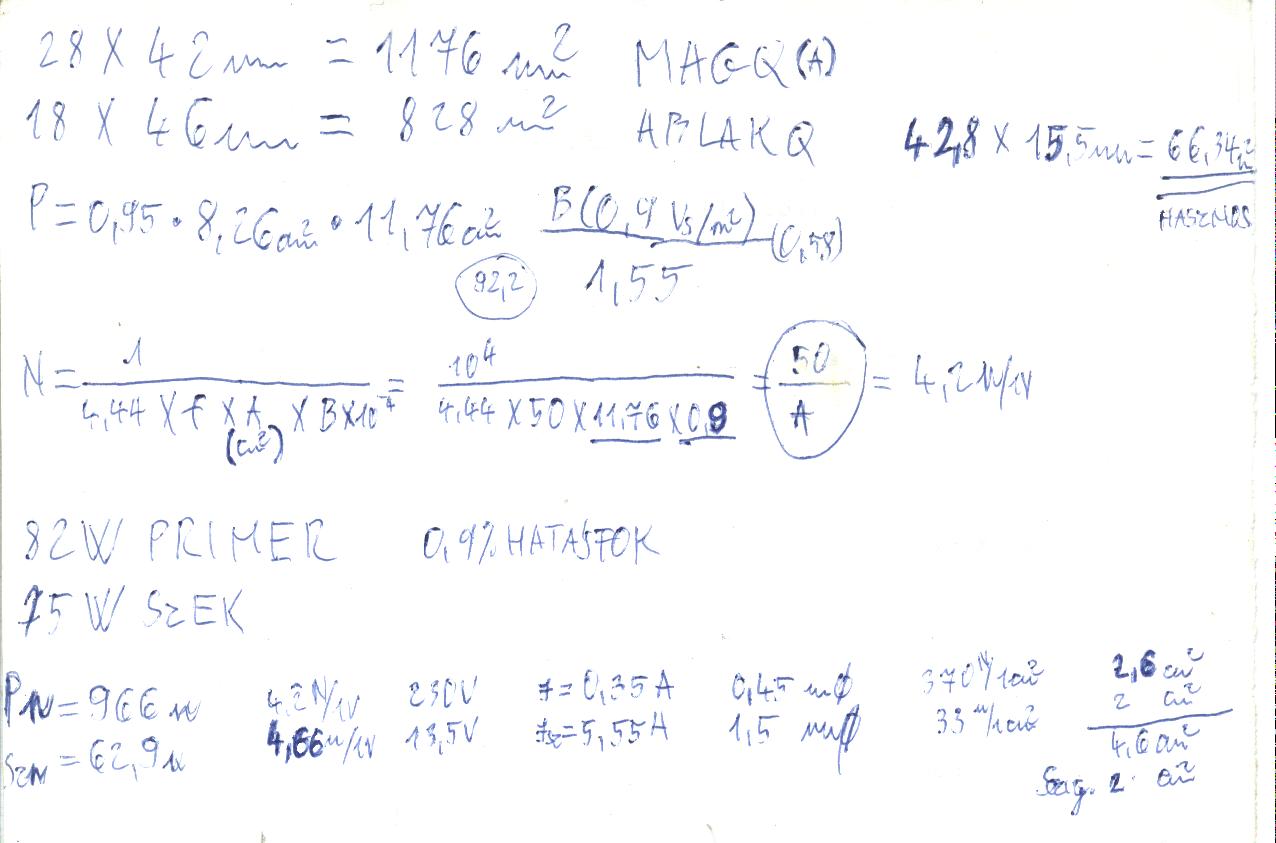 28 X 42mm = 1176 mm² MAGQ (A)
18 X 46mm = 828 m² ABLAKQ 42,8 X 15,5mm = 66,34
HASZNOS
P = 0,95 · 8,26cm² · 11,76cm² B(0,9 Vs/m²) (0,58)
92,2 1,55
N = 1 / 4.44 X f X A (cm²) X B X 10⁻⁴ = 10⁴ / 4.44 X 50 X 11,76 X 0,9 = 50 / A = 4,2 N/1V
82W PRIMER 0,9% HATÁSFOK
75W SZEK
PN = 966 n 4,2 N/1V 230V I = 0,35A 0,45 mØ 370 N/1cm² 2,6 cm²
SZN = 62,9n 4,66 n/1V 13,5V = 5,55A 1,5 mmØ 33 n/1cm² 2 cm²
4,6 cm²
2 cm²